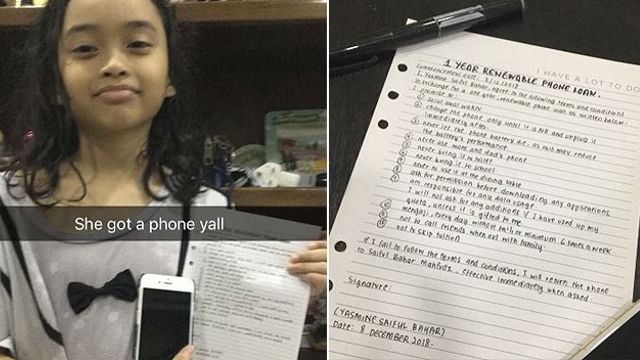 She got a phone yall
I HAVE A LOT TO DO
1 YEAR RENEWABLE PHONE LOAN.
Commencement date: 8/12/2018
I, Yasmine Saiful Bahar, agree to the following terms and conditions
in exchange for a one year, renewable phone loan as written below:
I promise to:
① local
② charge the phone only until it is full and unplug it
immediately after.
③ never let the phone battery die, as this may reduce
the battery's performance
never use mom and dad's phone
never bring it to toilet
never bring it to school
never to use it at the dining table
ask for permission before downloading any applications
am responsible for any data usage
I will not ask for any additional if I have used up my
quota, unless it is gifted to me
mengaji every day without fail or minimum 6 times a week.
not to call friends when out with family.
not to skip tuition
If I fail to follow the terms and conditions, I will return the phone
to Saiful Bahar, effective immediately when asked.
Signature:
(YASMINE SAIFUL BAHAR)
Date: 8 DECEMBER 2018.